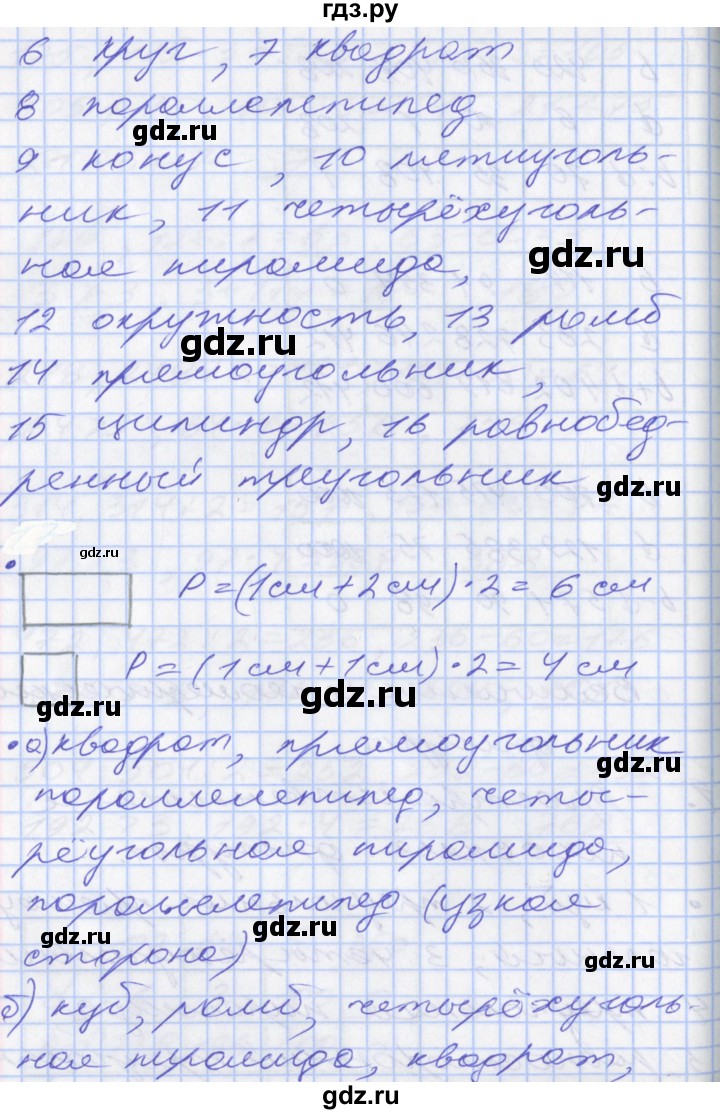 гдз.ру
6 круг, 7 квадрат
8 параллелепипед
gdz.ru
9 конус, 10 пятиуголь-
ник, 11 четырёхуголь-
gdz.ru
ная пирамида,
12 окружность, 13 ромб
gdz.ru
14 прямоугольник,
15 цилиндр, 16 равнобед-
ренный треугольник
gdz.ru
gdz.ru
P = (1см + 2см) · 2 = 6 см
P = (1см + 1см) · 2 = 4 см
gdz.ru
gdz.ru
• а) квадрат, прямоугольник
gdz.ru
параллелепипед, четы-
рёугольная пирамида,
параллелепипед (узкая
gdz.ru
gdz.ru
сторона)
gdz.ru
б) куб, ромб, четырёхуголь-
ная пирамида, квадрат,
gdz.ru
gdz.ru
gdz.ru